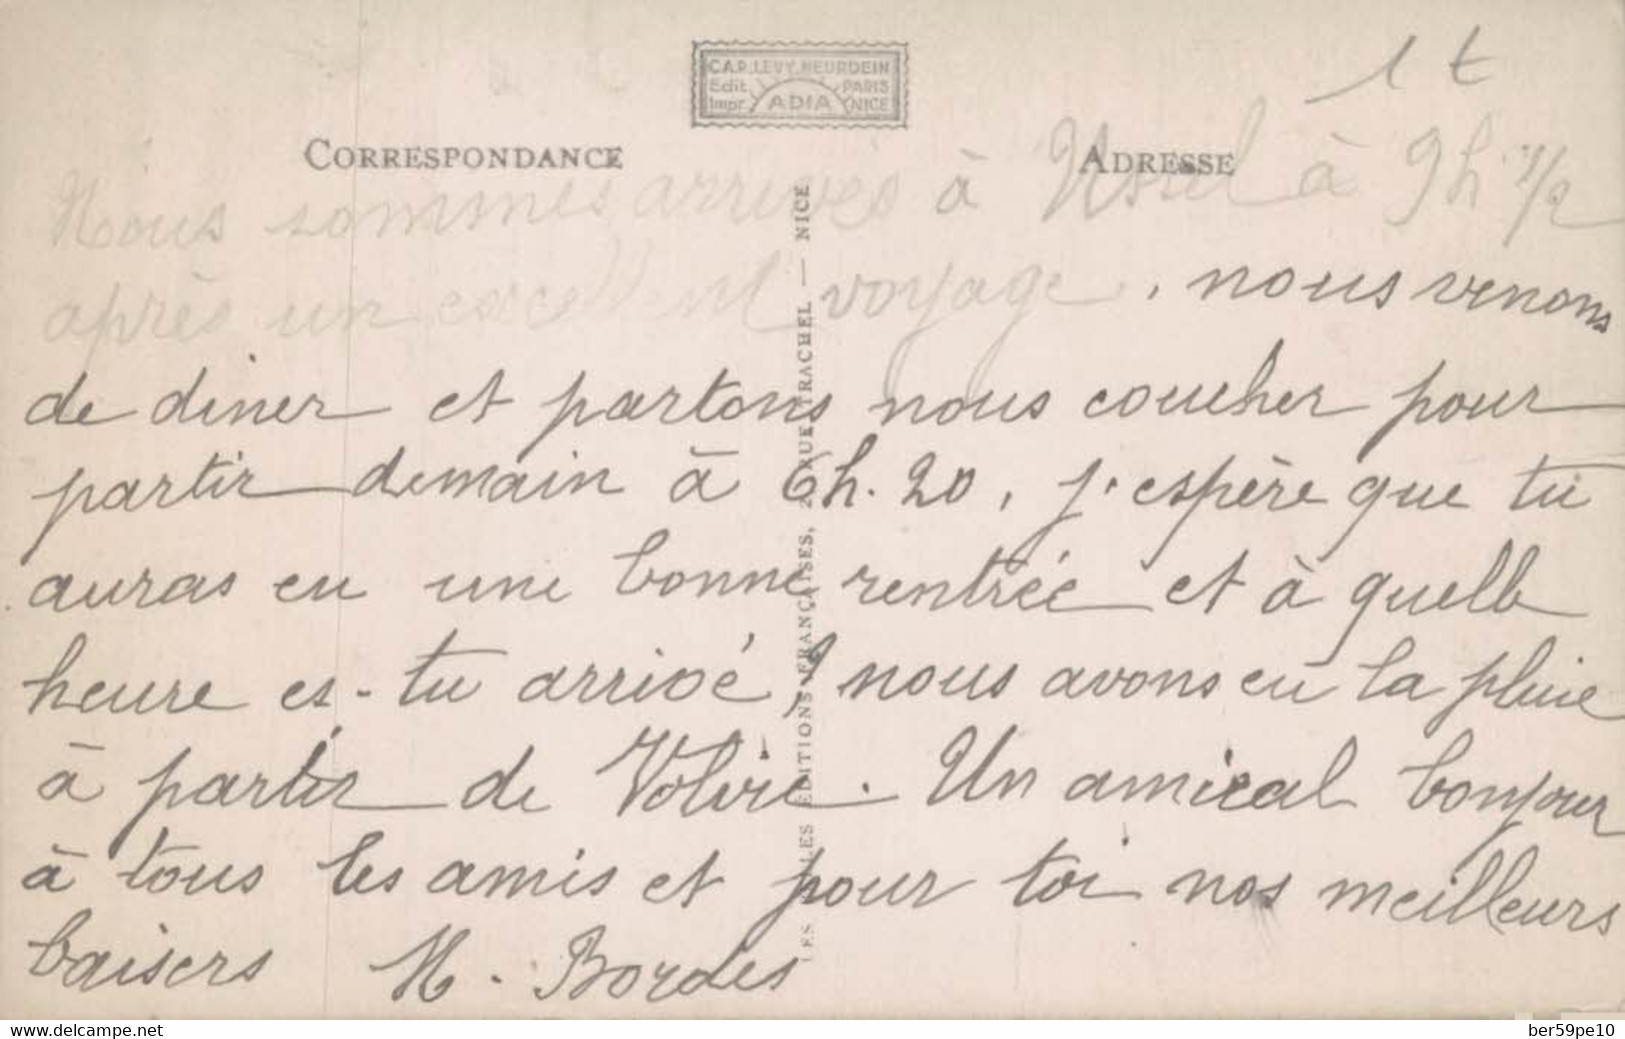 1 t
C.A.P. LEVY NEURDEIN
Edit. PARIS
Impr. ADIA NICE
CORRESPONDANCE
ADRESSE
Nous sommes arrivés à Ussel à 9h 1/2
après un excellent voyage, nous venons
de diner et partons nous coucher pour
partir demain à 6h.20, j'espère que tu
auras eu une bonne rentrée et à quelle
heure es-tu arrivé, nous avons eu la pluie
à partir de Volvic. Un amical bonjour
à tous les amis et pour toi nos meilleurs
baisers M. Bordes
LES ÉDITIONS FRANÇAISES, 2 RUE TRACHEL — NICE
delcampe.net
ber59pe10